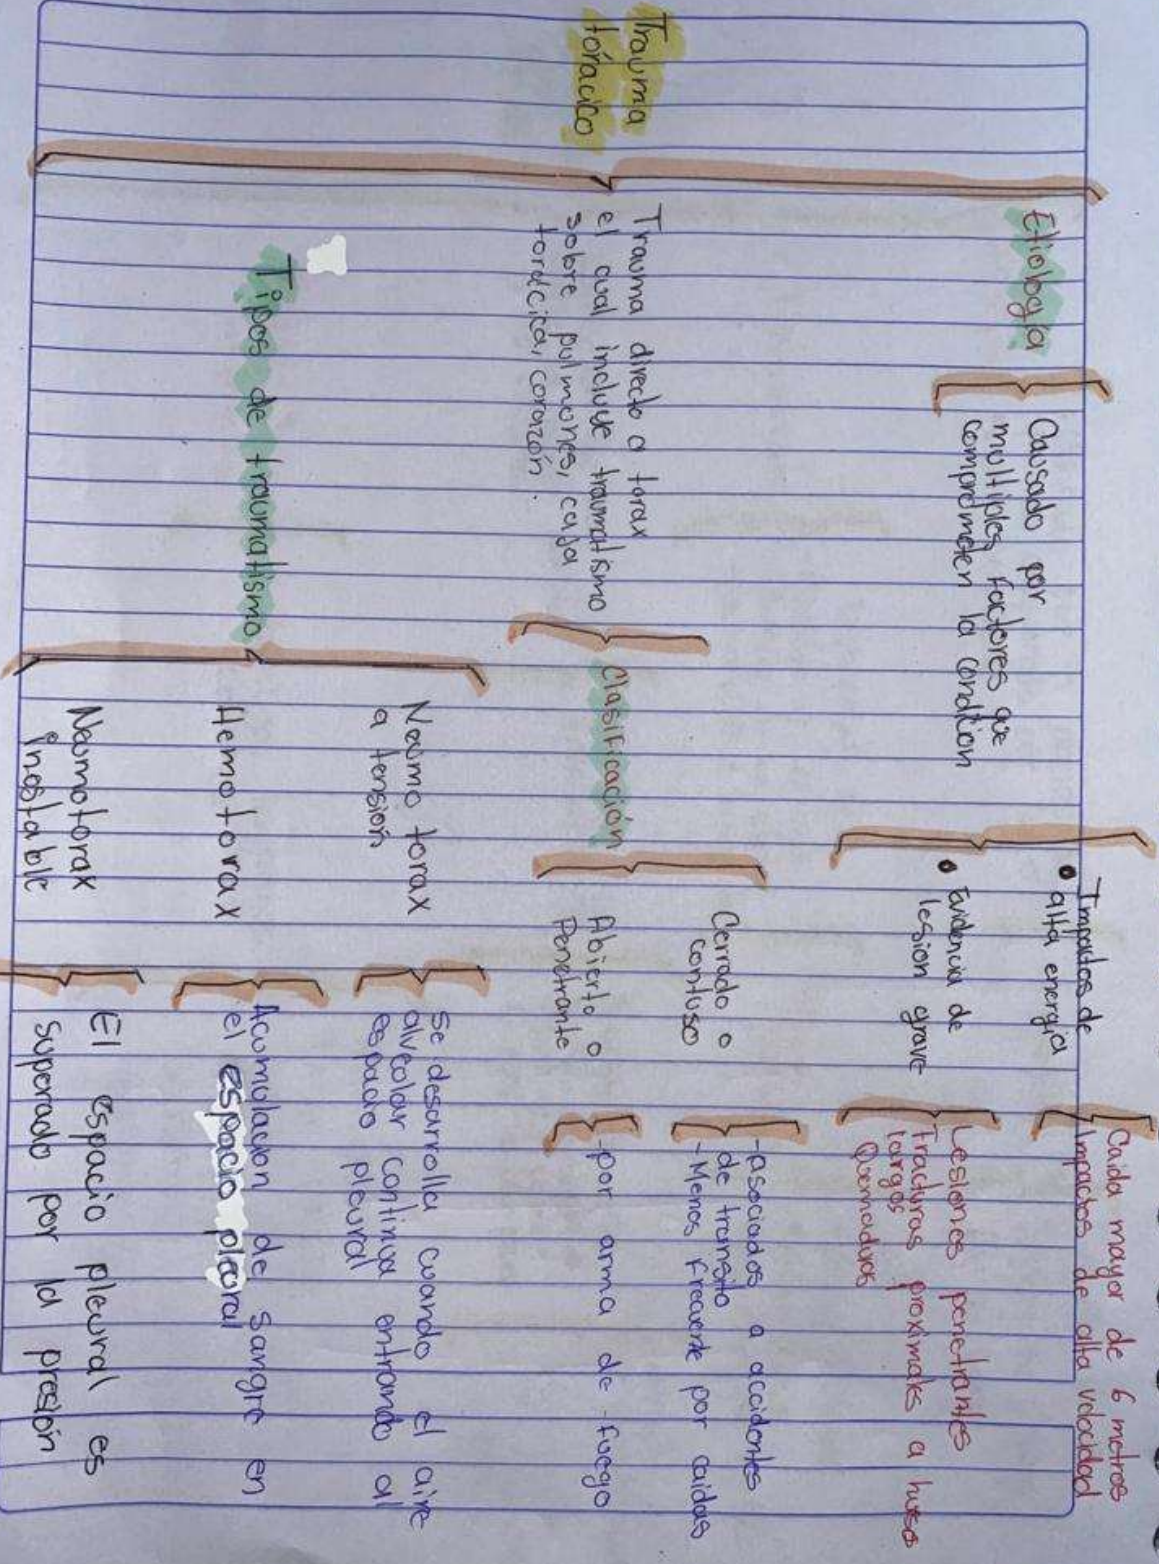 Trauma
torácico
Etiología
Causado por
multiples factores que
comprometen la condicion
Impactos de
• alta energia
• Evidencia de
lesion grave
Caida mayor de 6 metros
Impactos de alta velocidad
Lesiones penetrantes
Fracturas proximales a hueso
largos
Quemaduras
Trauma directo a torax
el cual incluye traumatismo
sobre pulmones, caja
toracica, corazón.
Clasificación
Cerrado o
contuso
-asociados a accidentes
de transito
-Menos frecuente por caidas
Abierto o
Penetrante
-por arma de fuego
Tipos de traumatismo
Neumo torax
a tension
se desarrolla cuando el aire
alveolar continua entrando al
espacio pleural
Hemotorax
Acumulacion de sangre en
el espacio pleural
Neumotorax
inestable
El espacio pleural es
superado por la presión